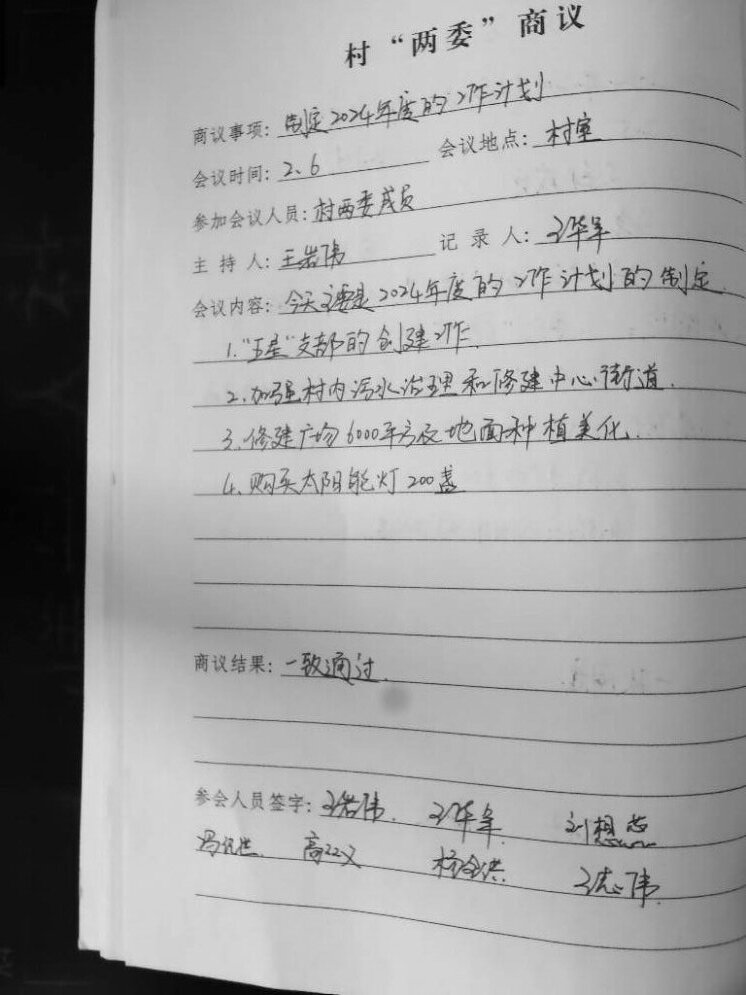 村“两委”商议
商议事项：制定2024年度的工作计划
会议时间：2.6 会议地点：村室
参加会议人员：村两委成员
主持人：王岩伟 记录人：王华军
会议内容：今天主要是2024年度的工作计划的制定
1.“五星”支部的创建工作.
2.加强村内污水治理和修建中心街道.
3.修建广场6000平方及地面种植美化.
4.购买太阳能灯200盏
商议结果：一致通过.
参会人员签字：王岩伟. 王华军
王志伟